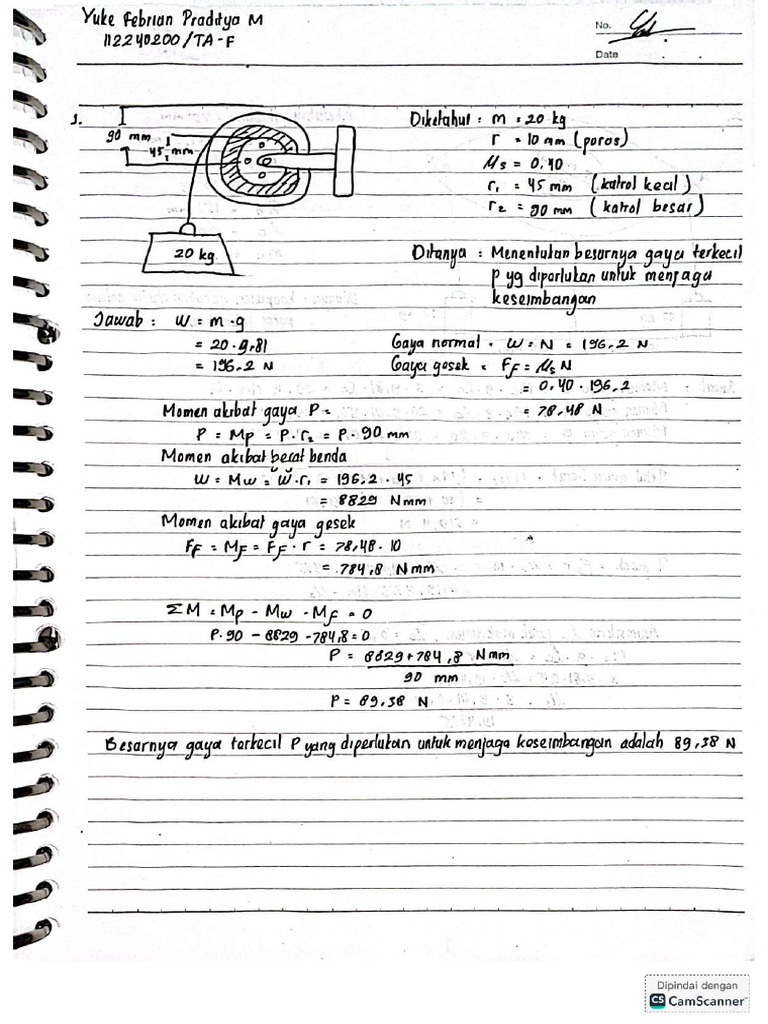 Yuke Febrian Praditya M
112240200/TA-F
No.
Date
1.
90 mm
45 mm
20 kg
Diketahui : m = 20 kg
r = 10 mm (poros)
μs = 0,40
r₁ = 45 mm (katrol kecil)
r₂ = 90 mm (katrol besar)
Ditanya : Menentukan besarnya gaya terkecil
p yg diperlukan untuk menjaga
keseimbangan
Jawab : W = m · g
= 20 · 9,81
= 196,2 N
Gaya normal = W = N = 196,2 N
Gaya gesek = FF = μs N
= 0,40 · 196,2
= 78,48 N
Momen akibat gaya P =
P = Mp = P · r₂ = P · 90 mm
Momen akibat berat benda
W = Mw = W · r₁ = 196,2 · 45
= 8829 Nmm
Momen akibat gaya gesek
FF = MF = FF · r = 78,48 · 10
= 784,8 Nmm
ΣM = Mp - Mw - MF = 0
P·90 - 8829 - 784,8 = 0
P = 8829 + 784,8 Nmm
90 mm
P = 89,38 N
Besarnya gaya terkecil P yang diperlukan untuk menjaga koseimbangan adalah 89,38 N
Dipindai dengan
CS CamScanner